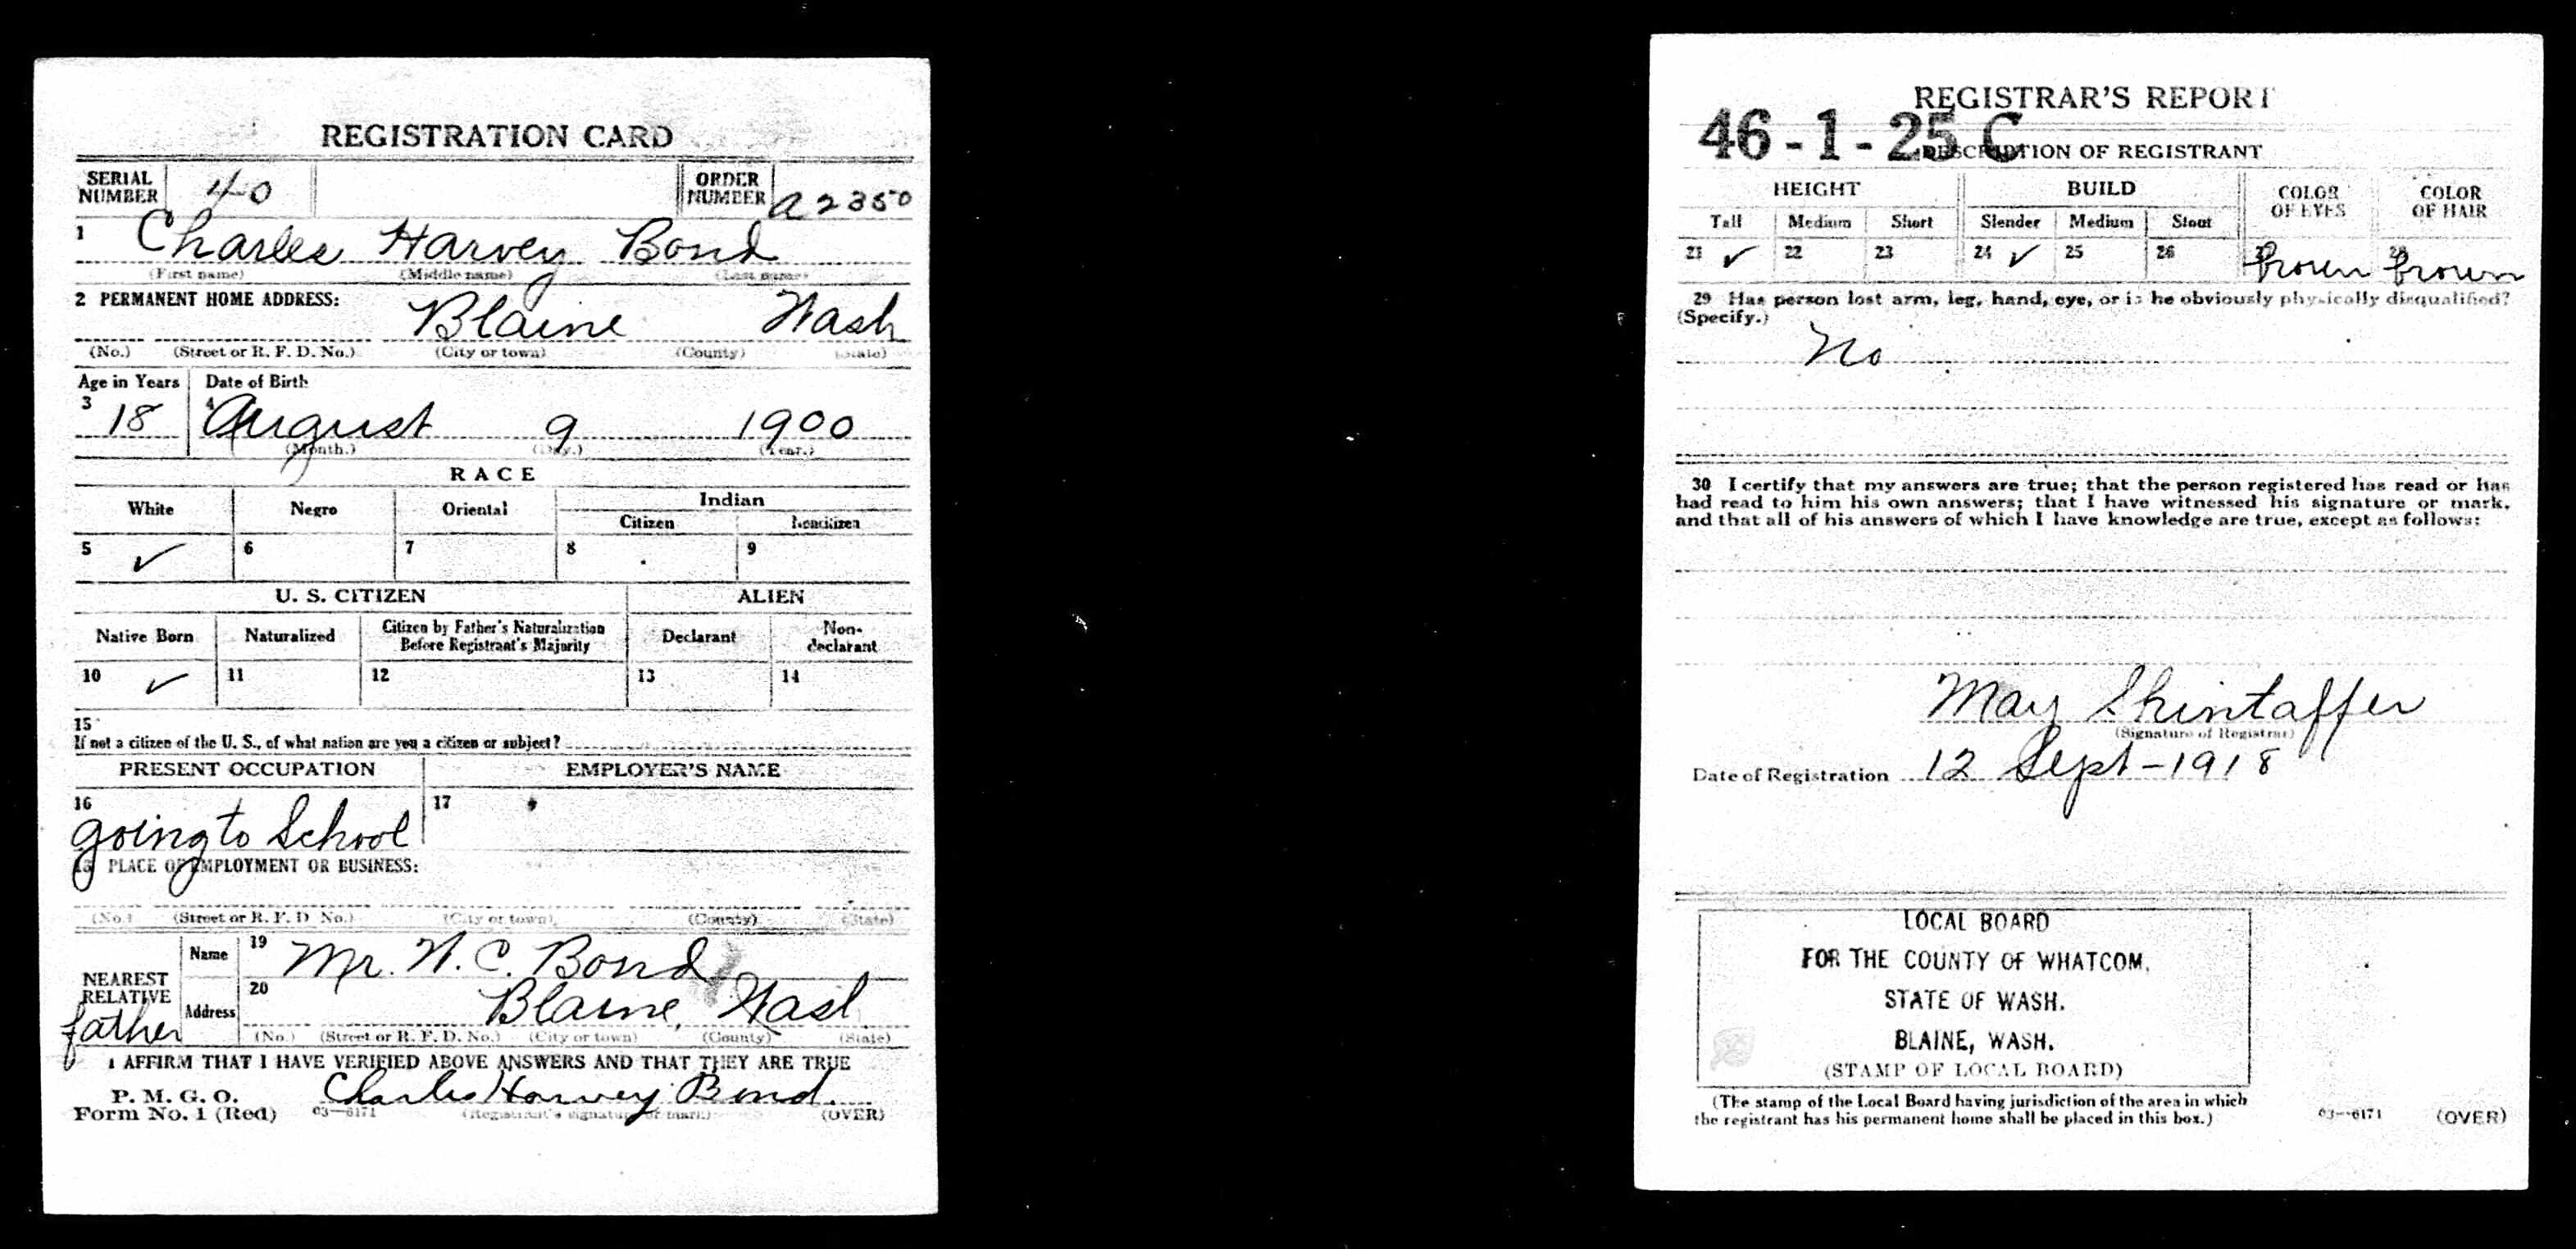 REGISTRATION CARD
SERIAL NUMBER 40 ORDER NUMBER A2350
1 Charles Harvey Bond
(First name) (Middle name) (Last name)
2 PERMANENT HOME ADDRESS:
Blaine Wash
(No.) (Street or R. F. D. No.) (City or town) (County) (State)
Age in Years Date of Birth
3 18 4 August 9 1900
(Month.) (Day.) (Year.)
RACE
White Negro Oriental Indian
Citizen Noncitizen
5 ✓ 6 7 8 9
U. S. CITIZEN ALIEN
Native Born Naturalized Citizen by Father's Naturalization Before Registrant's Majority Declarant Non-declarant
10 ✓ 11 12 13 14
15
If not a citizen of the U. S., of what nation are you a citizen or subject?
PRESENT OCCUPATION EMPLOYER'S NAME
16 17
going to School
18 PLACE OF EMPLOYMENT OR BUSINESS:
(No.) (Street or R. F. D. No.) (City or town) (County) (State)
NEAREST RELATIVE father
Name 19 Mr. W. C. Bond
Address 20 Blaine, Wash
(No.) (Street or R. F. D. No.) (City or town) (County) (State)
I AFFIRM THAT I HAVE VERIFIED ABOVE ANSWERS AND THAT THEY ARE TRUE
P. M. G. O. Charles Harvey Bond
Form No. 1 (Red) 03—6171 (Registrant's signature or mark) (OVER)
REGISTRAR'S REPORT
46-1-25 C
DESCRIPTION OF REGISTRANT
HEIGHT BUILD COLOR OF EYES COLOR OF HAIR
Tall Medium Short Slender Medium Stout
21 ✓ 22 23 24 ✓ 25 26 27 brown 28 brown
29 Has person lost arm, leg, hand, eye, or is he obviously physically disqualified?
(Specify.)
No
30 I certify that my answers are true; that the person registered has read or has
had read to him his own answers; that I have witnessed his signature or mark,
and that all of his answers of which I have knowledge are true, except as follows:
May Shintaffer
(Signature of Registrar)
Date of Registration 12 Sept-1918
LOCAL BOARD
FOR THE COUNTY OF WHATCOM,
STATE OF WASH.
BLAINE, WASH.
(STAMP OF LOCAL BOARD)
(The stamp of the Local Board having jurisdiction of the area in which
the registrant has his permanent home shall be placed in this box.)
03—6171 (OVER)